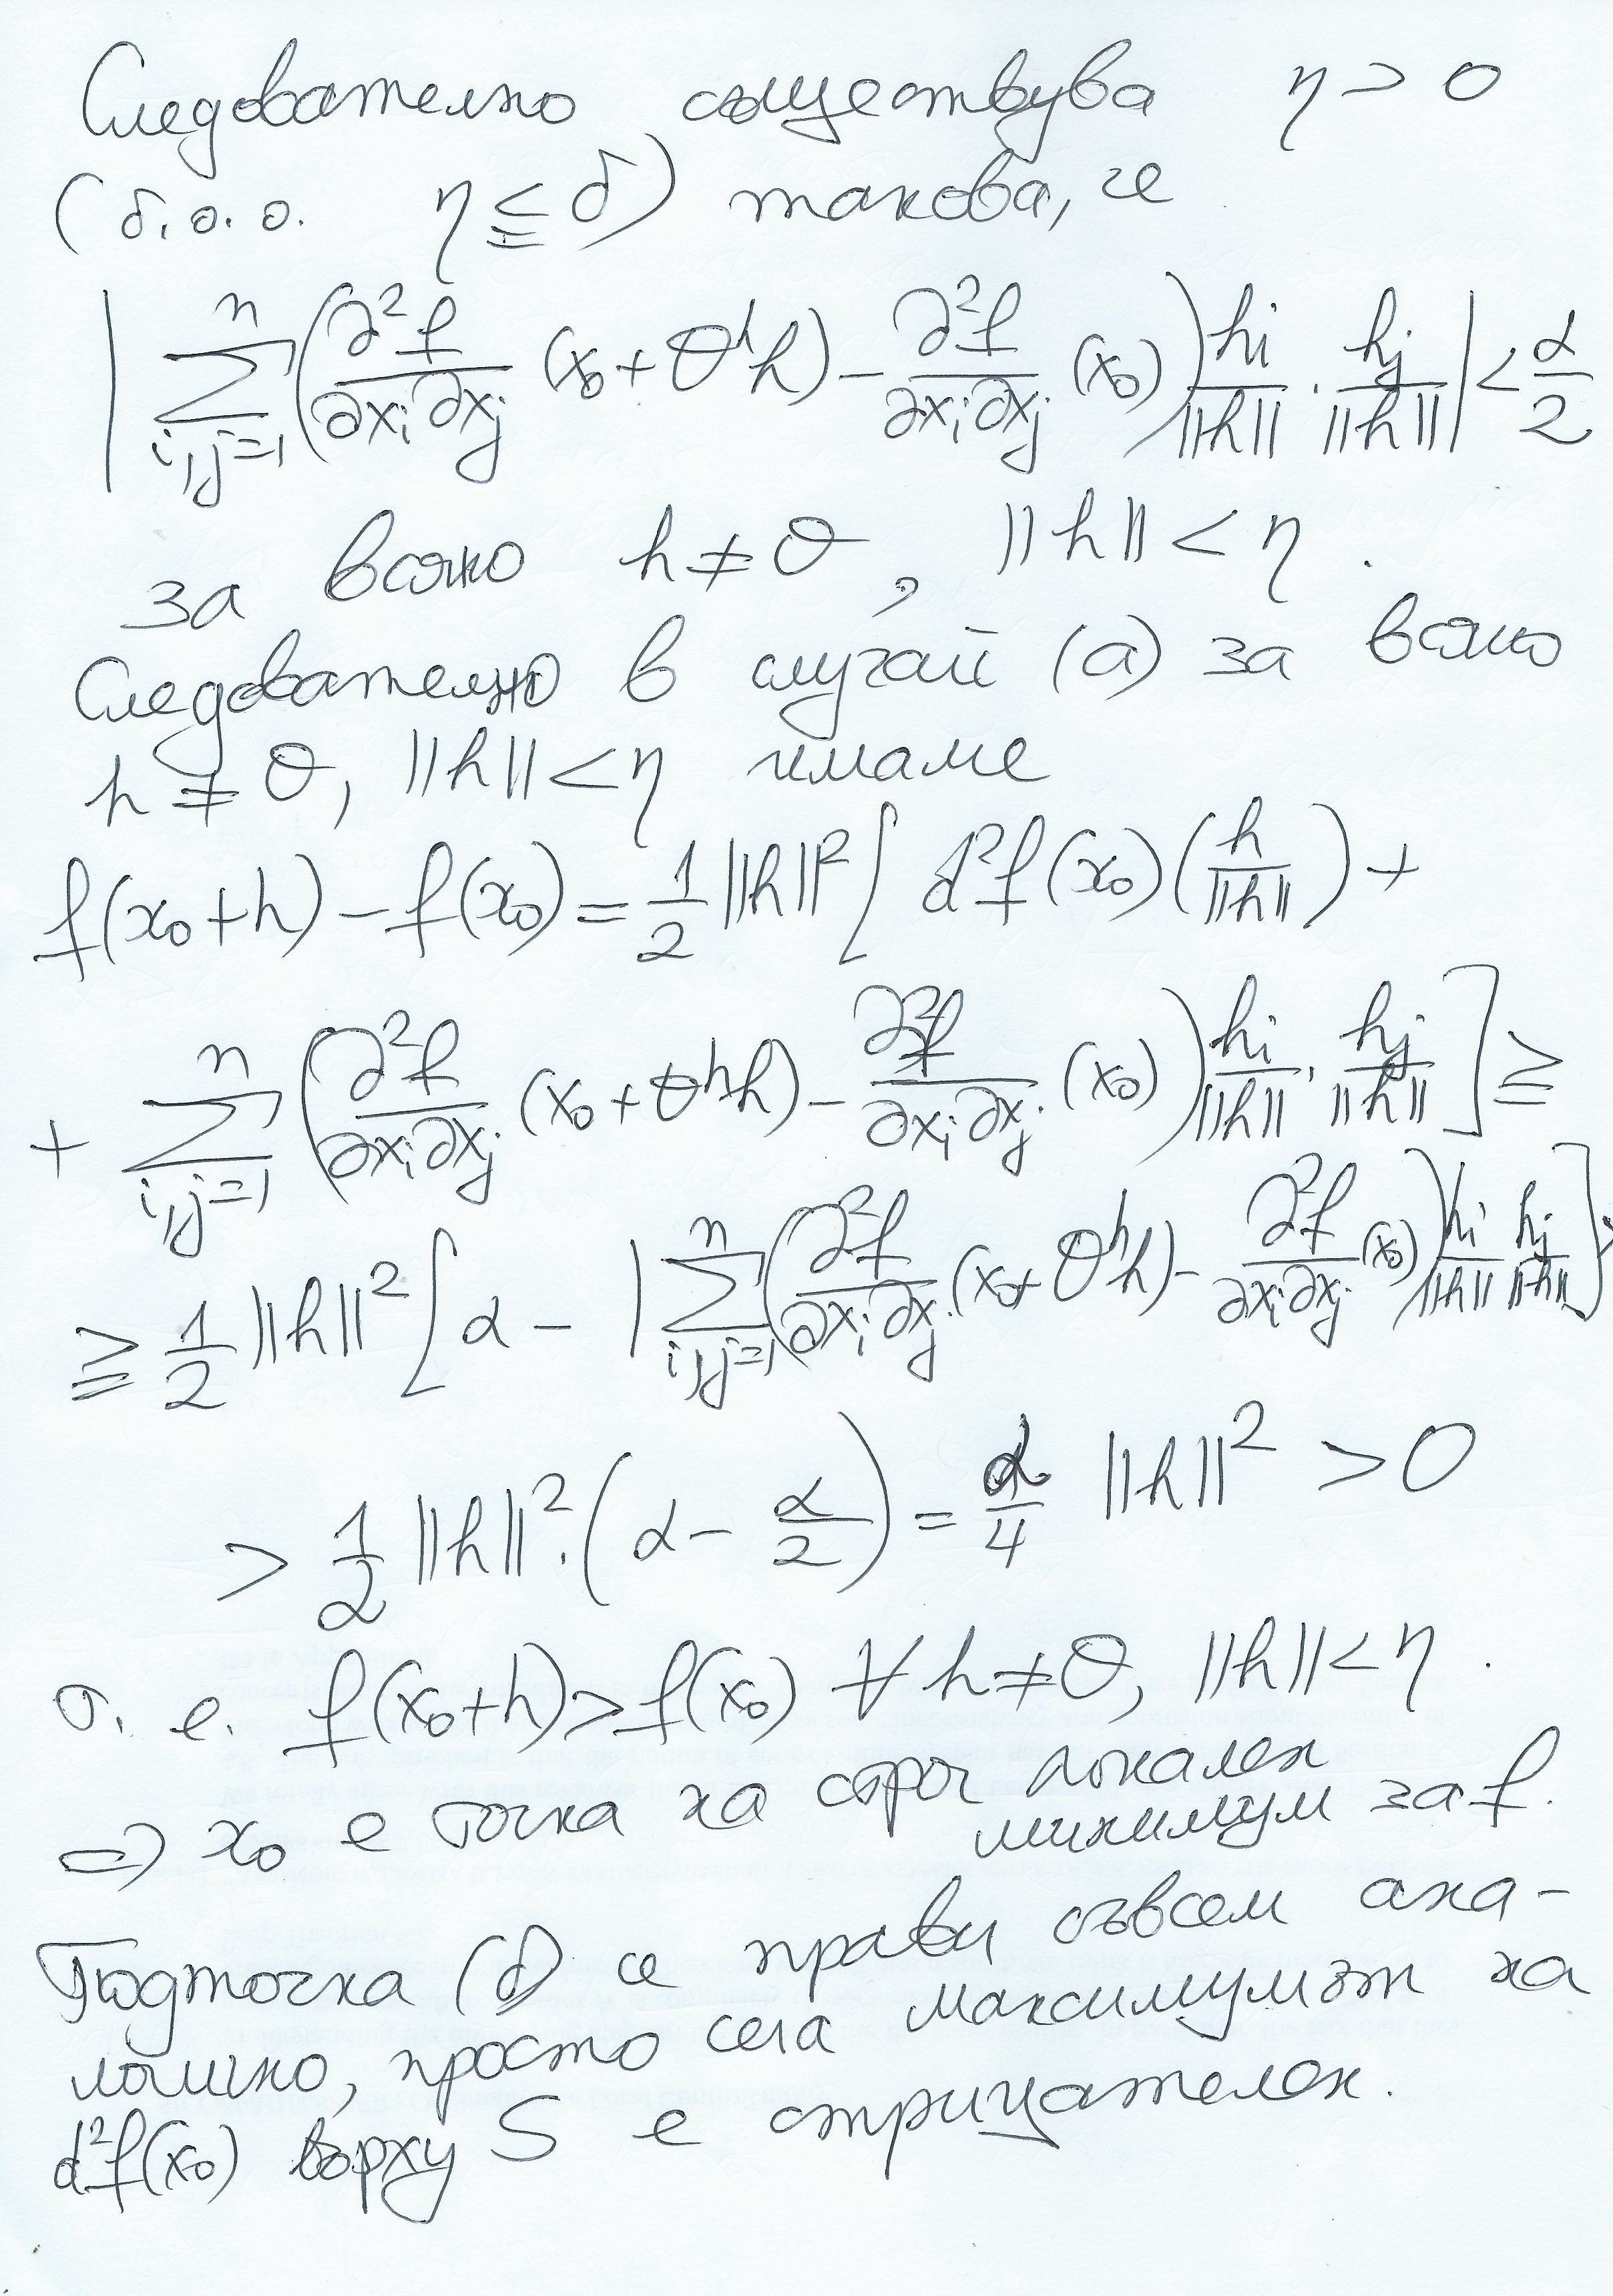 Следователно съществува η > 0
(б.о.о. η ≦ δ) такова, че
| ∑_{i,j=1}^{n} (∂²f/∂x_i∂x_j (x₀ + θ^h h) − ∂²f/∂x_i∂x_j (x₀)) h_i/||h|| . h_j/||h|| | < α/2
за всяко h ≠ 0, ||h|| < η .
Следователно в случай (а) за всяко
h ≠ 0, ||h|| < η имаме
f(x₀+h) − f(x₀) = 1/2 ||h||² [ d²f(x₀)(h/||h||) +
+ ∑_{i,j=1}^{n} (∂²f/∂x_i∂x_j (x₀ + θ^h h) − ∂²f/∂x_i∂x_j (x₀)) h_i/||h|| . h_j/||h|| ] ≧
≧ 1/2 ||h||² [ α − | ∑_{i,j=1}^{n} (∂²f/∂x_i∂x_j (x₀ + θ^h h) − ∂²f/∂x_i∂x_j (x₀)) h_i/||h|| h_j/||h|| ] >
> 1/2 ||h||² . (α − α/2) = α/4 ||h||² > 0
т. е. f(x₀+h) > f(x₀) ∀ h ≠ 0, ||h|| < η .
⇒ x₀ е точка на строг локален
минимум за f.
Подточка (б) се прави съвсем ана-
логично, просто сега максимумът на
d²f(x₀) върху S е отрицателен.